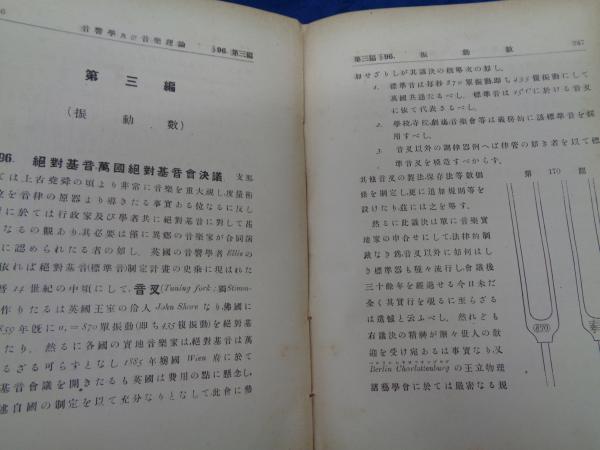 6
音響學及び音樂理論
§96. 第三編
第三編
(振動數)
96. 絕對基音、萬國絕對基音會決議
支那
ては上古堯舜の頃より非常に音樂を重大視し、度量衡
を音律の原器より導きたる事實ある位なるに反し
に於ては行政家及び學者共に絕對基音に對して
なるの觀あり、其必要は僅に異鄕の音樂家が合同演
に認められたる者の如し、英國の音響學者 Ellis の
依れば絕對基音(標準音)制定計畫の史乘に現はれた
曆14世紀の中頃にして、音叉(Tuning fork; 獨 Stimm-
作りたるは英國王室の伶人 John Shore なり、佛國に
859年旣に a₁=870單振動(卽ち435複振動)を絕對基
たり、然るに各國の實地音樂家は、絕對基音は萬
るざる可らずとなし1885年墺國 Wien 府に於て
基音會議を開きたるも英國は費用の點に懸念し、
述自國の制定を以て充分なりとなして、此會に參
第三編 §96.
振動數
247
加せざりしが其議決の槪略次の如し、
1. 標準音は每秒870單振動、卽ち435複振動にして
萬國共通たるべし、標準音は15°Cに於ける音叉
に依て代表さるべし、
2. 學校、寺院、劇場、音樂會等は義務的に該標準音を採
用すべし、
3. 音叉以外の調律器例へば律管の如き者を以て標
準音叉を模造すべからず、
其他音叉の製法、保存法等數個
條を制定し、更に追加規則等を
設けたり、玆には之を略す、
第170圖
然るに此議決は單に音樂實
地家の申合せにして、法律的制
裁なき爲、音叉以外に如何はし
き標準器も種々流行し、會議後
三十餘年を經過せる今日未だ
全く其實行を覩るに至らざる
は遺憾と云ふべし、然れども
右議決の精神が漸々世人の歡
迎を受け宛あるは事實なり、又
Berlin Charlottenburg の王立物理
諸藝學會に於ては嚴密なる規
870